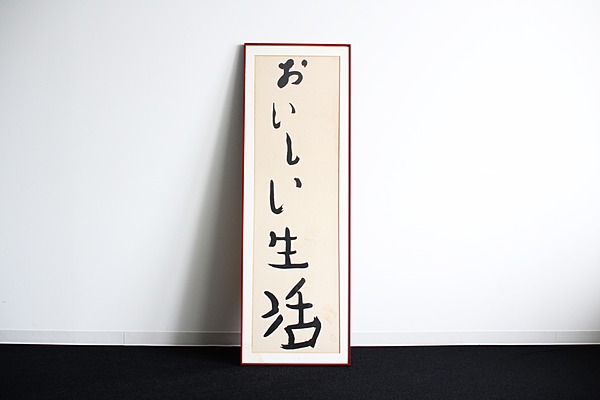 おいしい生活